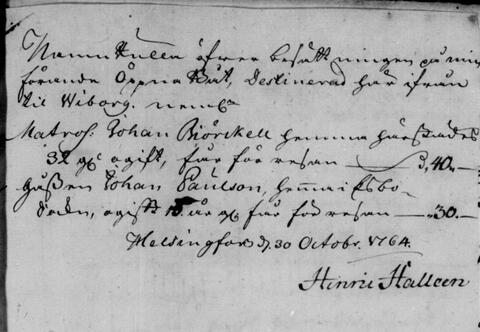 Namn Rulla öfwer besättningen på min
förande Öppna Båt, Destinerad här ifrån
til Wiborg. neml
Matros: Johan Biörckell hemma härstädes
32 gl ogift, får för resan — d. 40.—
Gåßen Johan Paulson, hemma i
ogift 15 år gl får för resan — 30.—
Helsingfors d. 30 Octobr. 1764.
Hinric Halleen